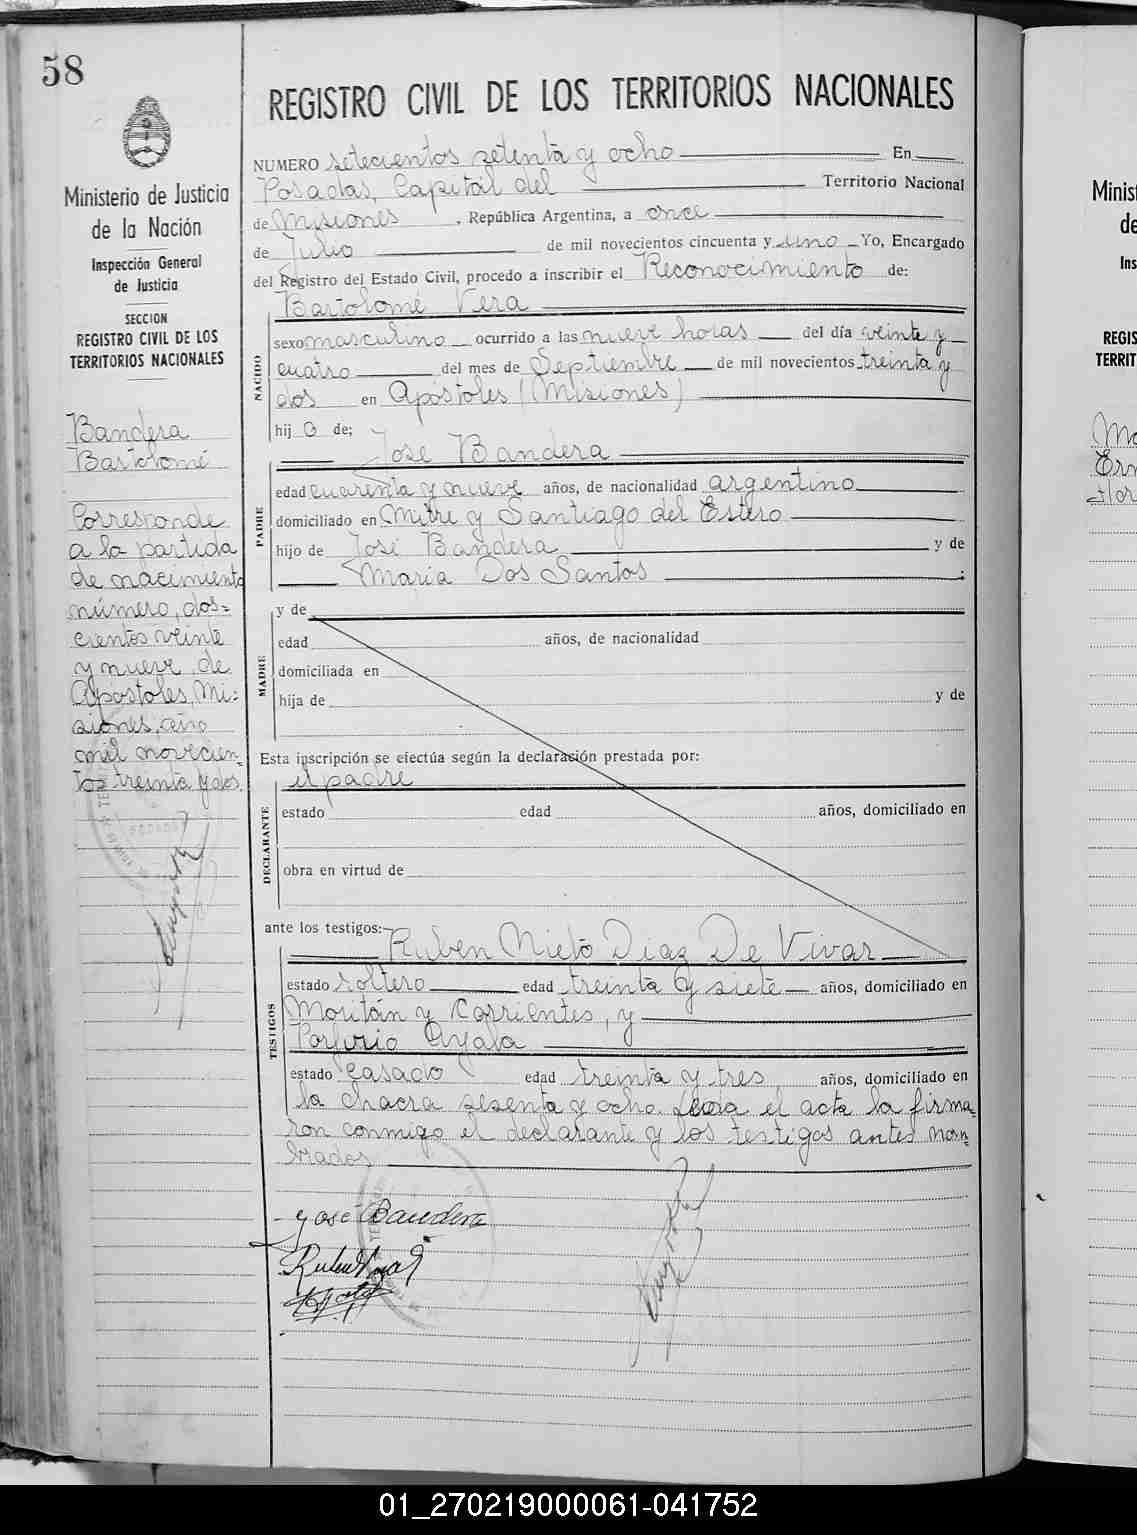 58
Ministerio de Justicia
de la Nación
Inspección General
de Justicia
SECCION
REGISTRO CIVIL DE LOS
TERRITORIOS NACIONALES
Bandera
Bartolomé
Corresponde
a la partida
de nacimiento
número, dos=
cientos veinte
y nueve de
Apóstoles, Mi=
siones, año
mil novecien=
tos treinta y dos.
REGISTRO CIVIL DE LOS TERRITORIOS NACIONALES
NUMERO setecientos setenta y ocho En
Posadas, Capital del Territorio Nacional
de Misiones, República Argentina, a once
de Julio de mil novecientos cincuenta y uno Yo, Encargado
del Registro del Estado Civil, procedo a inscribir el Reconocimiento de:
Bartolomé Vera
NACIDO
sexo masculino ocurrido a las nueve horas del día veinte y
cuatro del mes de Septiembre de mil novecientos treinta y
dos en Apóstoles (Misiones)
hij o de;
José Bandera
PADRE
edad cuarenta y nueve años, de nacionalidad argentino
domiciliado en Mitre y Santiago del Estero
hijo de José Bandera y de
María Dos Santos ;
MADRE
y de
edad años, de nacionalidad
domiciliada en
hija de y de
Esta inscripción se efectúa según la declaración prestada por:
el padre
DECLARANTE
estado edad años, domiciliado en
obra en virtud de
ante los testigos:
Ruben Nieto Diaz De Vivar
TESTIGOS
estado soltero edad treinta y siete años, domiciliado en
Moritán y Corrientes, y
Porfirio Ayala
estado casado edad treinta y tres años, domiciliado en
la chacra sesenta y ocho. Leída el acta la firma=
ron conmigo el declarante y los testigos antes nom=
brados
José Bandera
Minist
de
Ins
REGIS
TERRIT
01_270219000061-041752